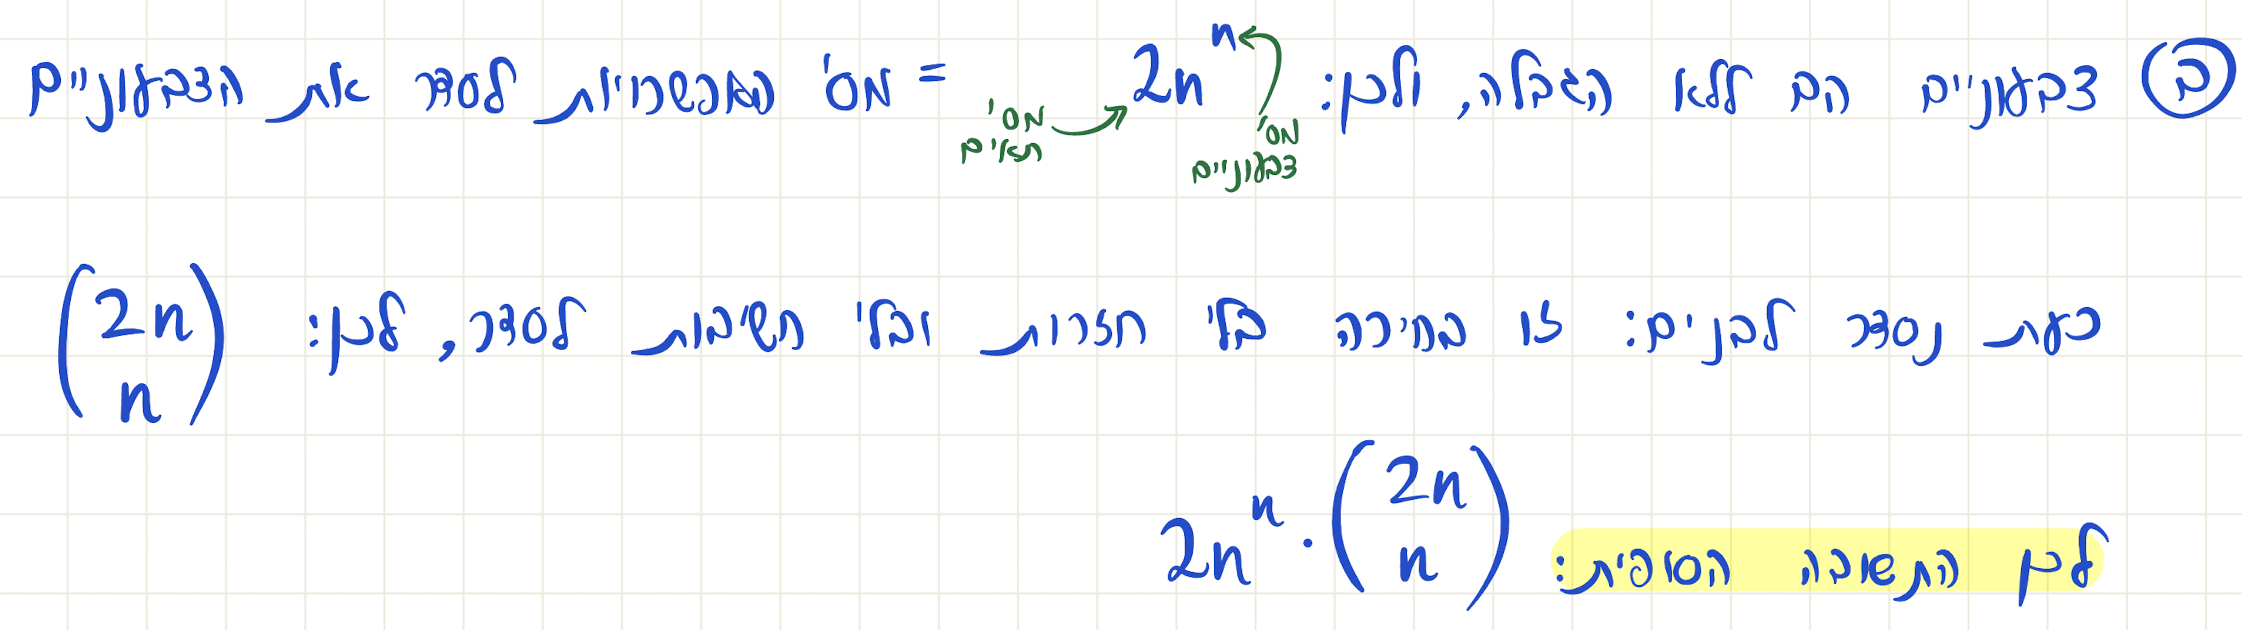 ב) צבעוניים הם ללא הגבלה, ולכן: 2n^n = מס' האפשרויות לסדר את הצבעוניים
מס' תאים
מס' צבעוניים
כעת נסדר לבנים: זו בחירה בלי חזרות ובלי חשיבות לסדר, לכן: (2n n)
לכן התשובה הסופית: 2n^n · (2n n)